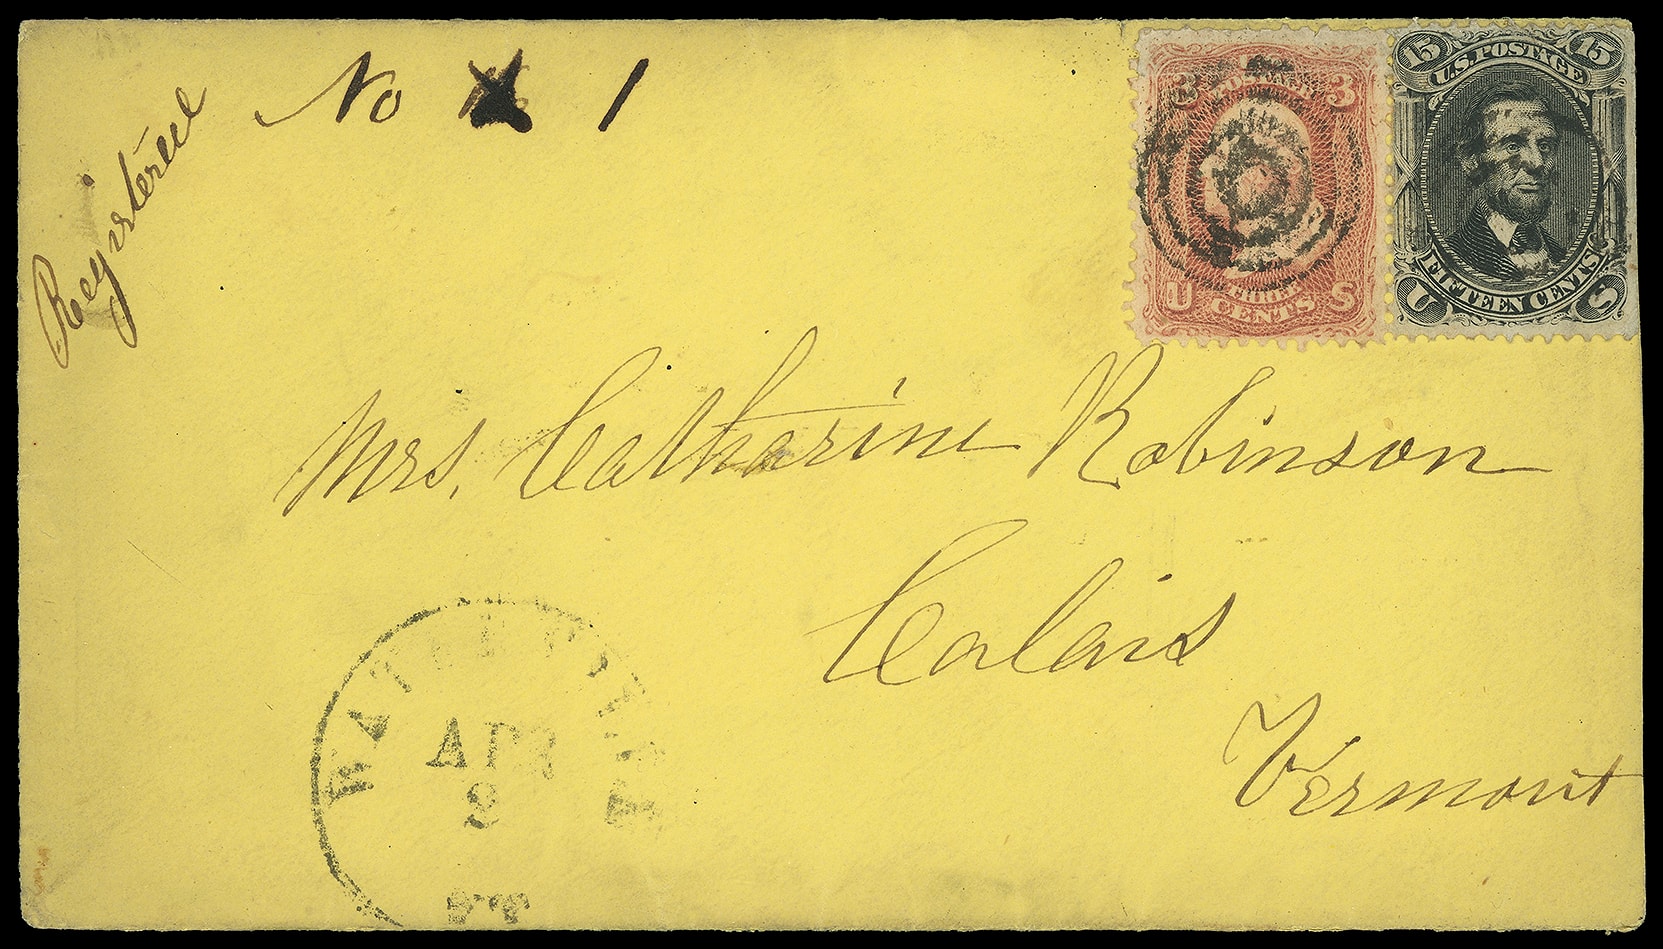 Registered
No 1
3 3
U CENTS S
THREE
15 U.S. POSTAGE 15
U FIFTEEN CENTS S
Mrs. Catharine Robinson
Calais
Vermont
APR
2